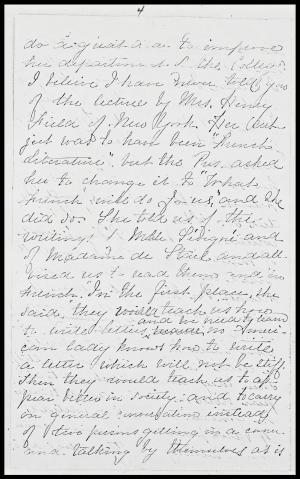 4
do a great deal to improve
her department of the College.
I believe I have never told you
of the lecture by Mrs. Henry
Field of New York. Her sub-
ject was to have been "French
Literature", but the Pres. asked
her to change it to "What
French will do for us," and she
did so. She told us of the
writings of Mlle Sévigné and
of Madame de Staël and ad-
vised us to read them and in
French. In the first place, she
said, they would teach us how
to write letters, no Ameri-
can lady knows how to write
a letter which will not be stiff.
Then they would teach us to ap-
pear better in society and to carry
on general conversation instead
of two persons getting in a corner
and talking by themselves as is